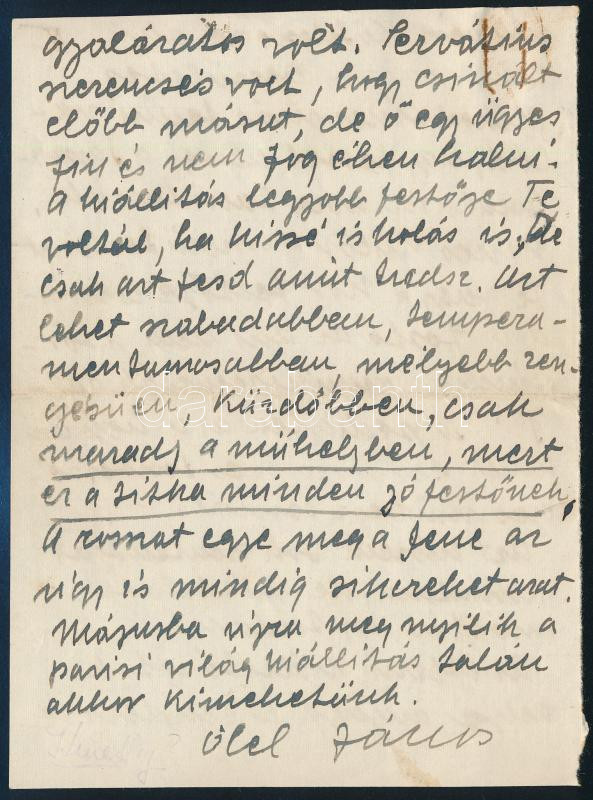 gyalázatos volt. Servátius
szerencsés volt, hogy csinált
előbb mást, de ő egy ügyes
fiú és nem fog éhen halni.
A kiállitás legjobb festője Te
voltál, ha kissé iskolás is, de
csak azt fesd amit tudsz. Azt
lehet szabadabban, tempera-
mentumosabban, mélyebb zen-
gésüen, küzdőbben, csak
maradj a mühelyben, mert
ez a titka minden jó festőnek.
A rosszat egye meg a fene az
úgy is mindig sikereket arat.
Májusba újra megnyilik a
parisi világkiállitás talán
akkor kimehetünk.
Ölel János
darabanth